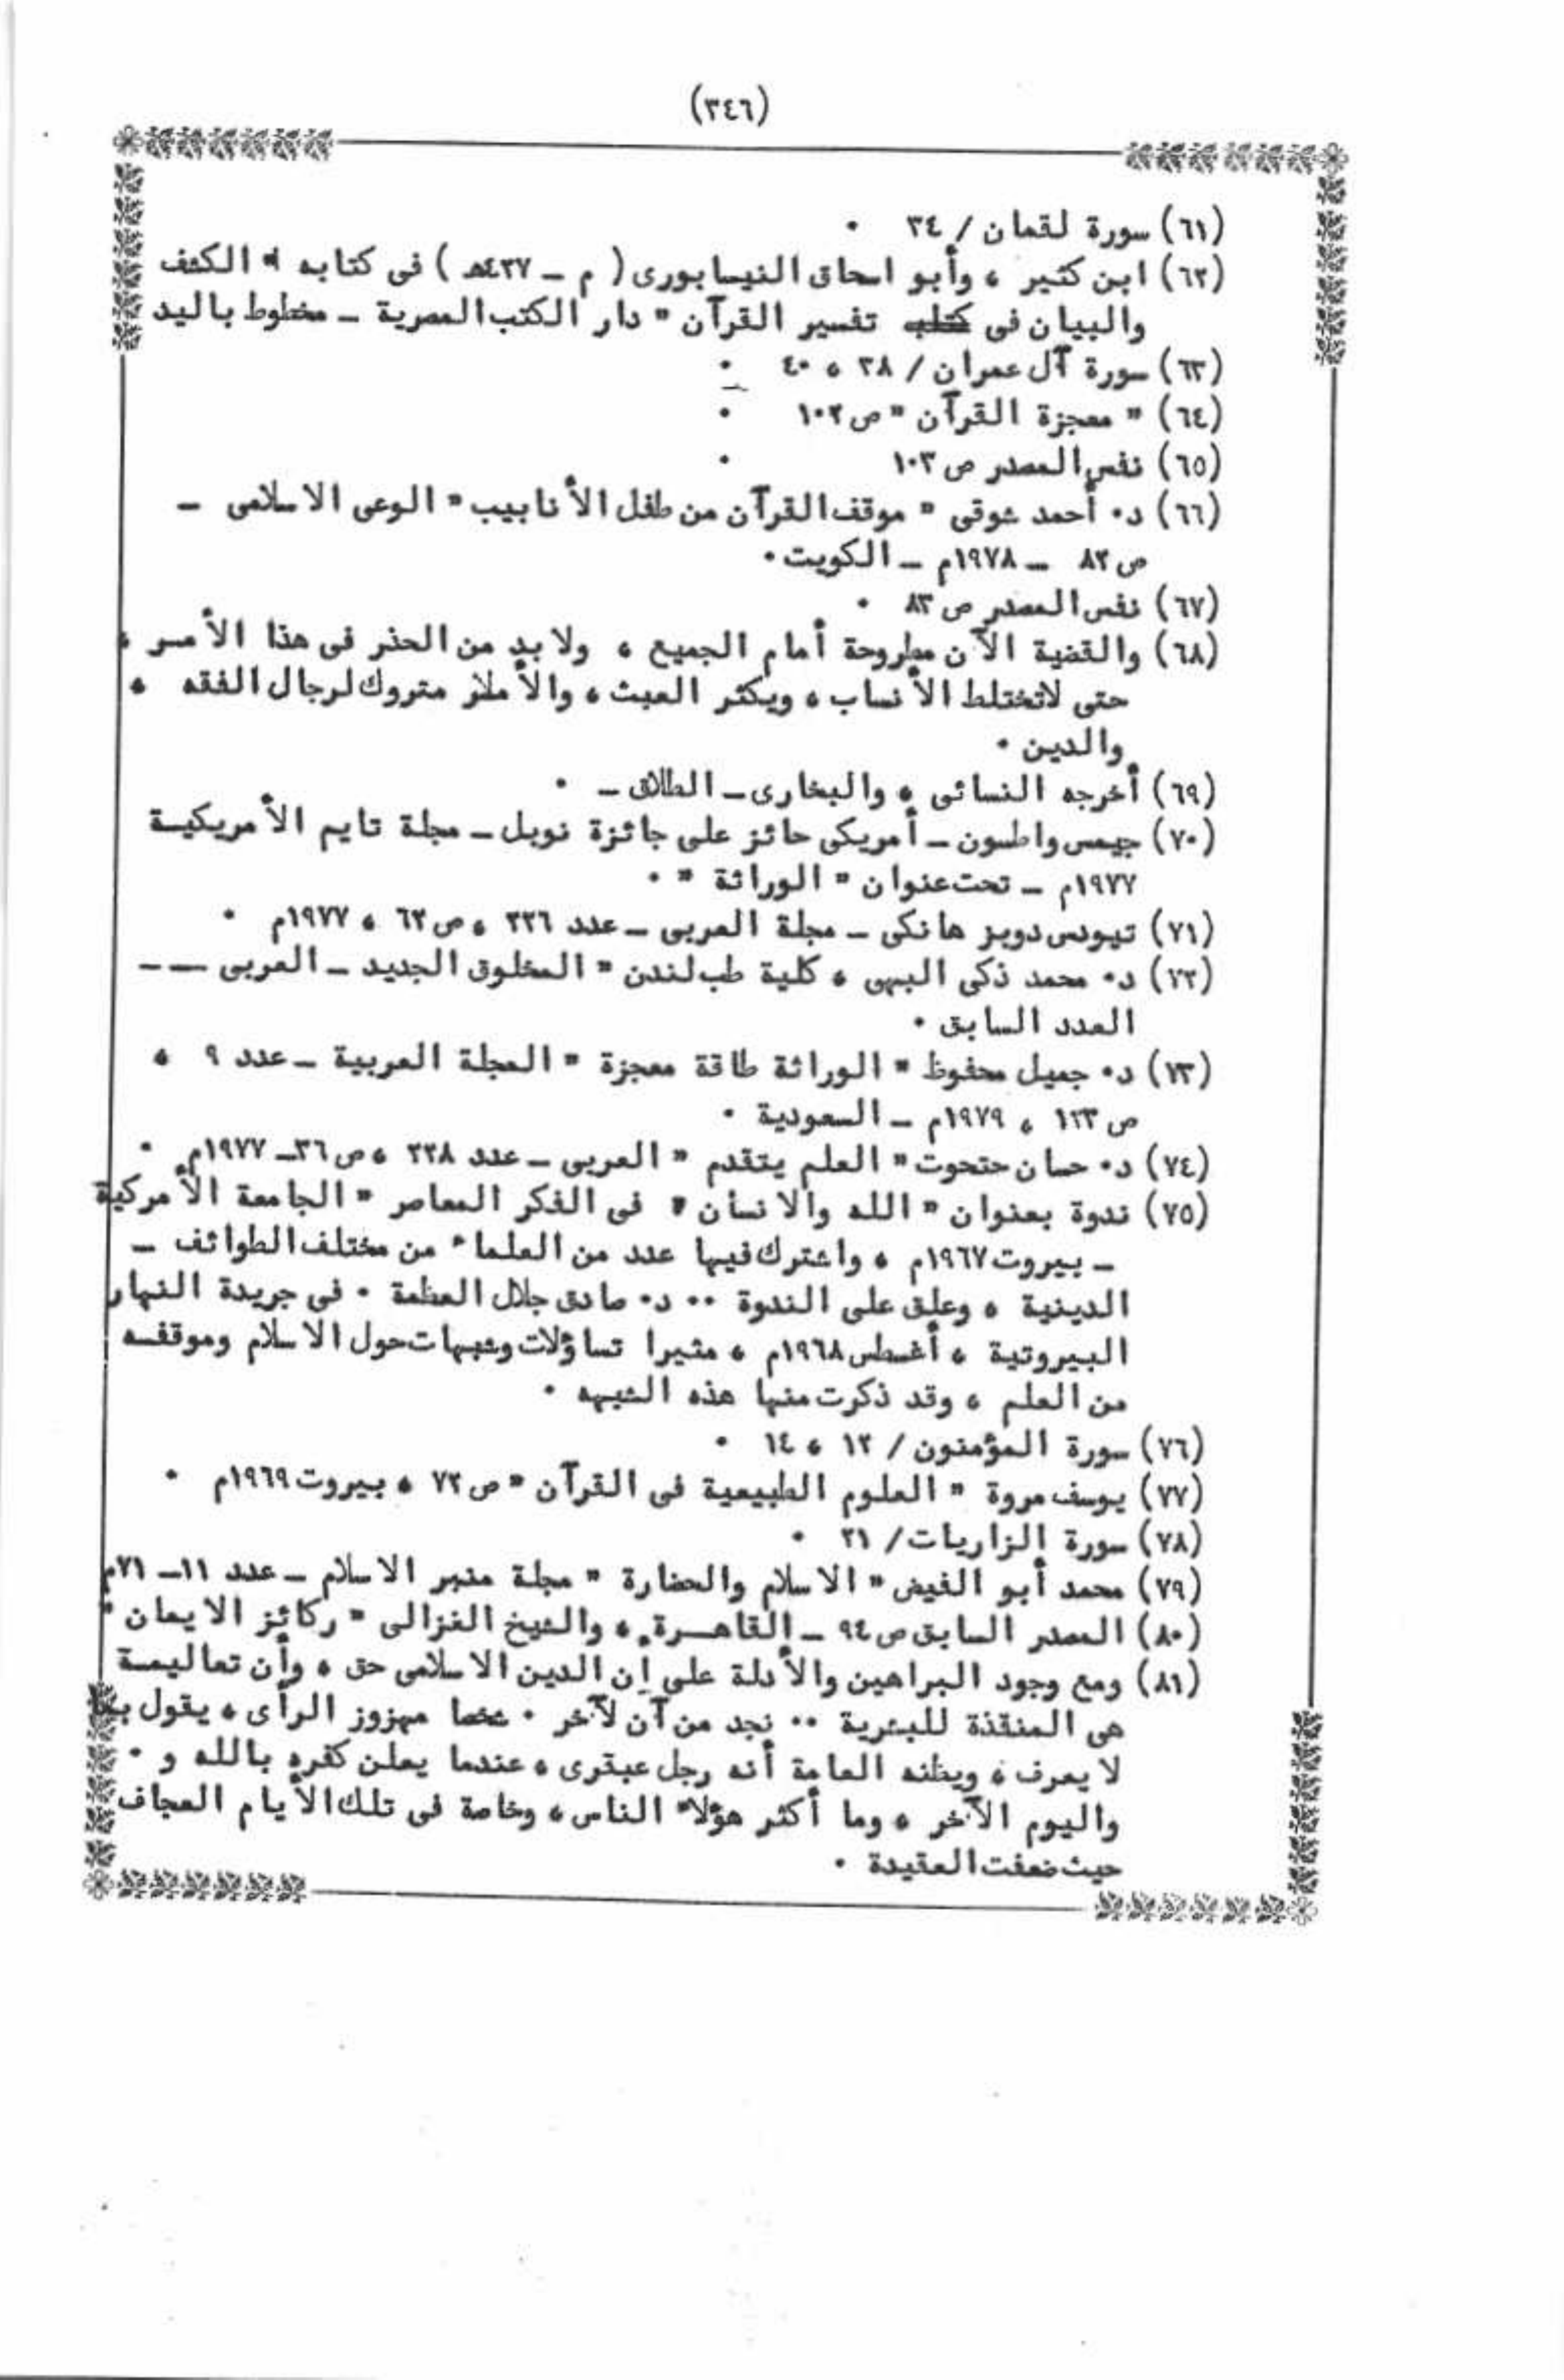 (٣٤٦)
(٦١) سورة لقمان / ٣٤ ٠
(٦٢) ابن كثير ، وأبو اسحاق النيسابورى ( م ـ ٤٢٧هـ ) فى كتابه " الكشف
والبيان فى تفسير القرآن " دار الكتب المصرية ـ مخطوط باليد
(٦٣) سورة آل عمران / ٣٨ ، ٤٠ ٠
(٦٤) " معجزة القرآن " ص ١٠٢ ٠
(٦٥) نفس المصدر ص ١٠٣ ٠
(٦٦) د٠ أحمد شوقى " موقف القرآن من طفل الأنابيب " الوعى الاسلامى ـ
ص ٨٢ ـ ١٩٧٨م ـ الكويت ٠
(٦٧) نفس المصدر ص ٨٣ ٠
(٦٨) والقضية الآن مطروحة أمام الجميع ، ولابد من الحذر فى هذا الأمر ،
حتى لاتختلط الأنساب ، ويكثر العبث ، متروك لرجال الفقه ،
والدين ٠
(٦٩) أخرجه النسائى ، والبخارى ـ الطلاق ـ ٠
(٧٠) جيمس واطسون ـ أمريكى حائز على جائزة نوبل ـ مجلة تايم الأمريكية
١٩٧٧م ـ تحت عنوان " الوراثة " ٠
(٧١) تيونس دويز هانكى ـ مجلة العربى ـ عدد ٢٢٦ ، ص ٦٢ ، ١٩٧٧م ٠
(٧٢) د٠ محمد ذكى البهى ، كلية طب لندن " المخلوق الجديد ـ العربى ـ ـ
العدد السابق ٠
(١٣) د٠ جميل محفوظ " الوراثة طاقة معجزة " المجلة العربية ـ عدد ٩ ،
ص ١٢٣ ، ١٩٧٩م ـ السعودية ٠
(٧٤) د٠ حسان حتحوت " العلم يتقدم " العربى ـ عدد ٢٢٨ ، ص ٣٦ ـ ١٩٧٧م ٠
(٧٥) ندوة بعنوان " الله والانسان " فى الفكر المعاصر " الجامعة الأمركية
ـ بيروت ١٩٦٧م ، واشترك فيها عدد من العلماء من مختلف الطوائف ـ
الدينية ، وعلق على الندوة ٠٠ د٠ صادق جلال العظمة ٠ فى جريدة النهار
البيروتية ، أغسطس ١٩٦٨م ، مثيرا تساؤلات وشبهات حول الاسلام وموقفه
من العلم ، وقد ذكرت منها هذه الشبهه ٠
(٧٦) سورة المؤمنون / ١٢ ، ١٤ ٠
(٧٧) يوسف مروة " العلوم الطبيعية فى القرآن " ص ٧٢ ، بيروت ١٩٦٩م ٠
(٧٨) سورة الزاريات / ٢١ ٠
(٧٩) محمد أبو الفيض " الاسلام والحضارة " مجلة منبر الاسلام ـ عدد ١١ ـ ٧١م
(٨٠) المصدر السابق ص ٩٤ ـ القاهرة ، والشيخ الغزالى " ركائز الايمان "
(٨١) ومع وجود البراهين والأدلة على إن الدين الاسلامى حق ، وأن تعاليمة
هى المنقذة للبشرية ٠٠ نجد من آن لآخر ٠ شخصا مهزوز الرأى ، يقول بما
لا يعرف ، ويظنه العامة أنه رجل عبقرى ، عندما يعلن كفره بالله و ٠
واليوم الآخر ، وما أكثر هؤلاء الناس ، وخاصة فى تلك الأيام العجاف
حيث ضعفت العقيدة ٠